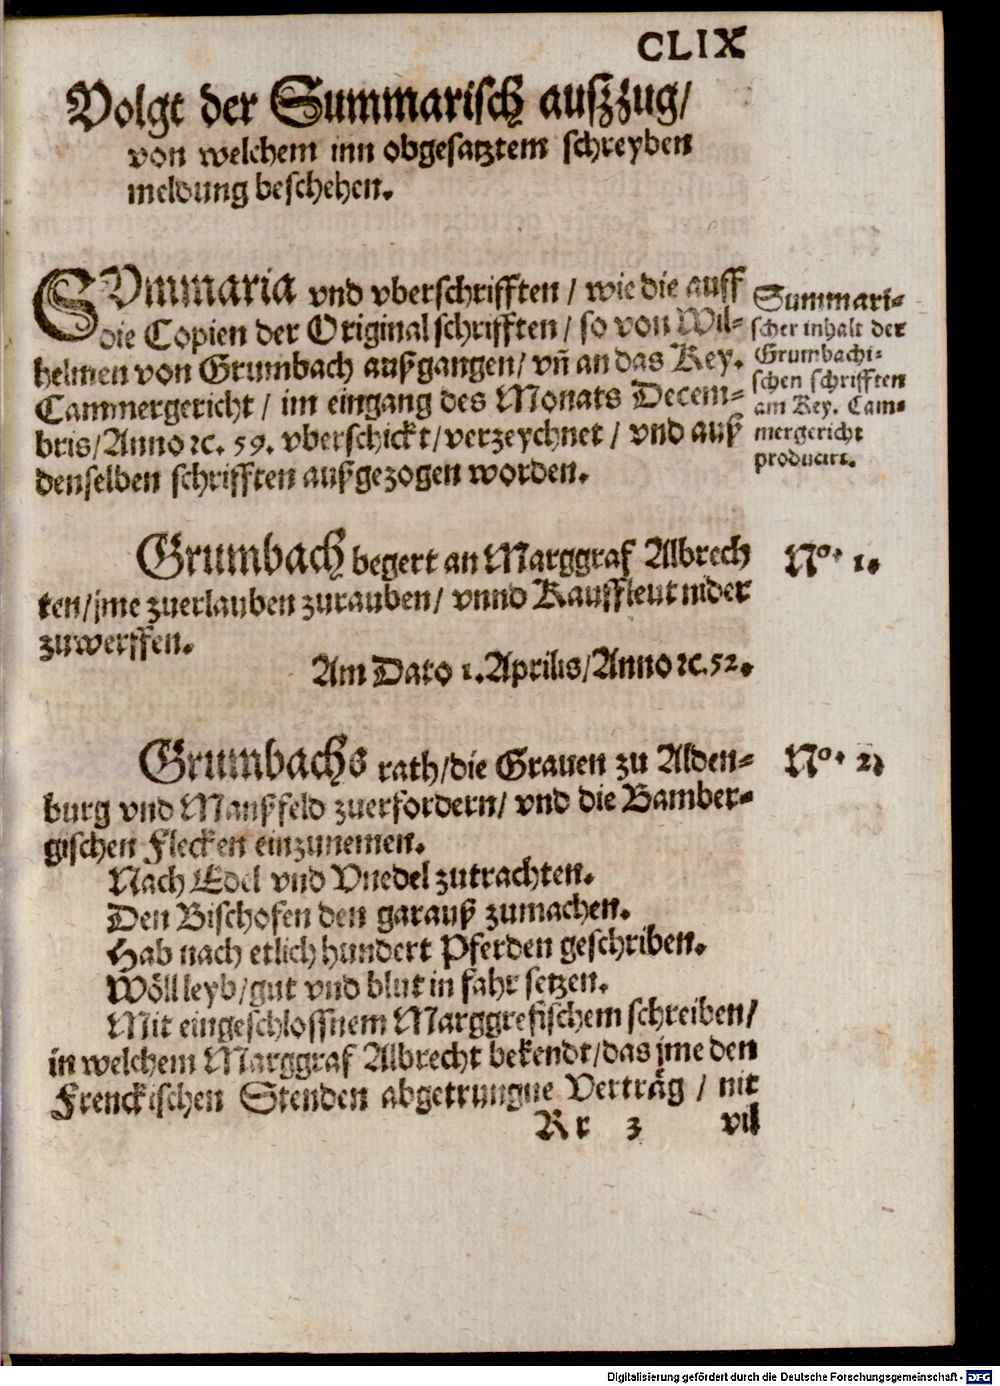 CLIX
Volgt der Summarisch auszzug/
von welchem inn obgesatztem schreyben
meldung beschehen.
SVmmaria vnd vberschrifften / wie die auff
die Copien der Original schrifften / so von Wil-
helmen von Grumbach außgangen / vñ an das Key.
Cammergericht / im eingang des Monats Decem-
bris/Anno ꝛc. 59. vberschickt/verzeychnet / vnd auß
denselben schrifften außgezogen worden.
Summari-
scher inhalt der
Grumbachi-
schen schrifften
am Key. Cam-
mergericht
producirt.
Grumbach begert an Marggraf Albrech
ten/jme zuerlauben zurauben/ vnnd Kauffleut nider
zuwerffen.
Nº. 1.
Am Dato 1. Aprilis/Anno ꝛc. 52.
Grumbachs rath/die Grauen zu Alden-
burg vnd Manßfeld zuerfordern/ vnd die Bamber-
gischen Flecken einzunemen.
Nº. 2.
Nach Edel vnd Vnedel zutrachten.
Den Bischofen den garauß zumachen.
Hab nach etlich hundert Pferden geschriben.
Wöll leyb/gut vnd blut in fahr setzen.
Mit eingeschlossnem Marggrefischem schreiben/
in welchem Marggraf Albrecht bekendt/das jme den
Frenckischen Stenden abgetrungne Verträg / nit
Rr 3 vil
Digitalisierung gefördert durch die Deutsche Forschungsgemeinschaft - DFG